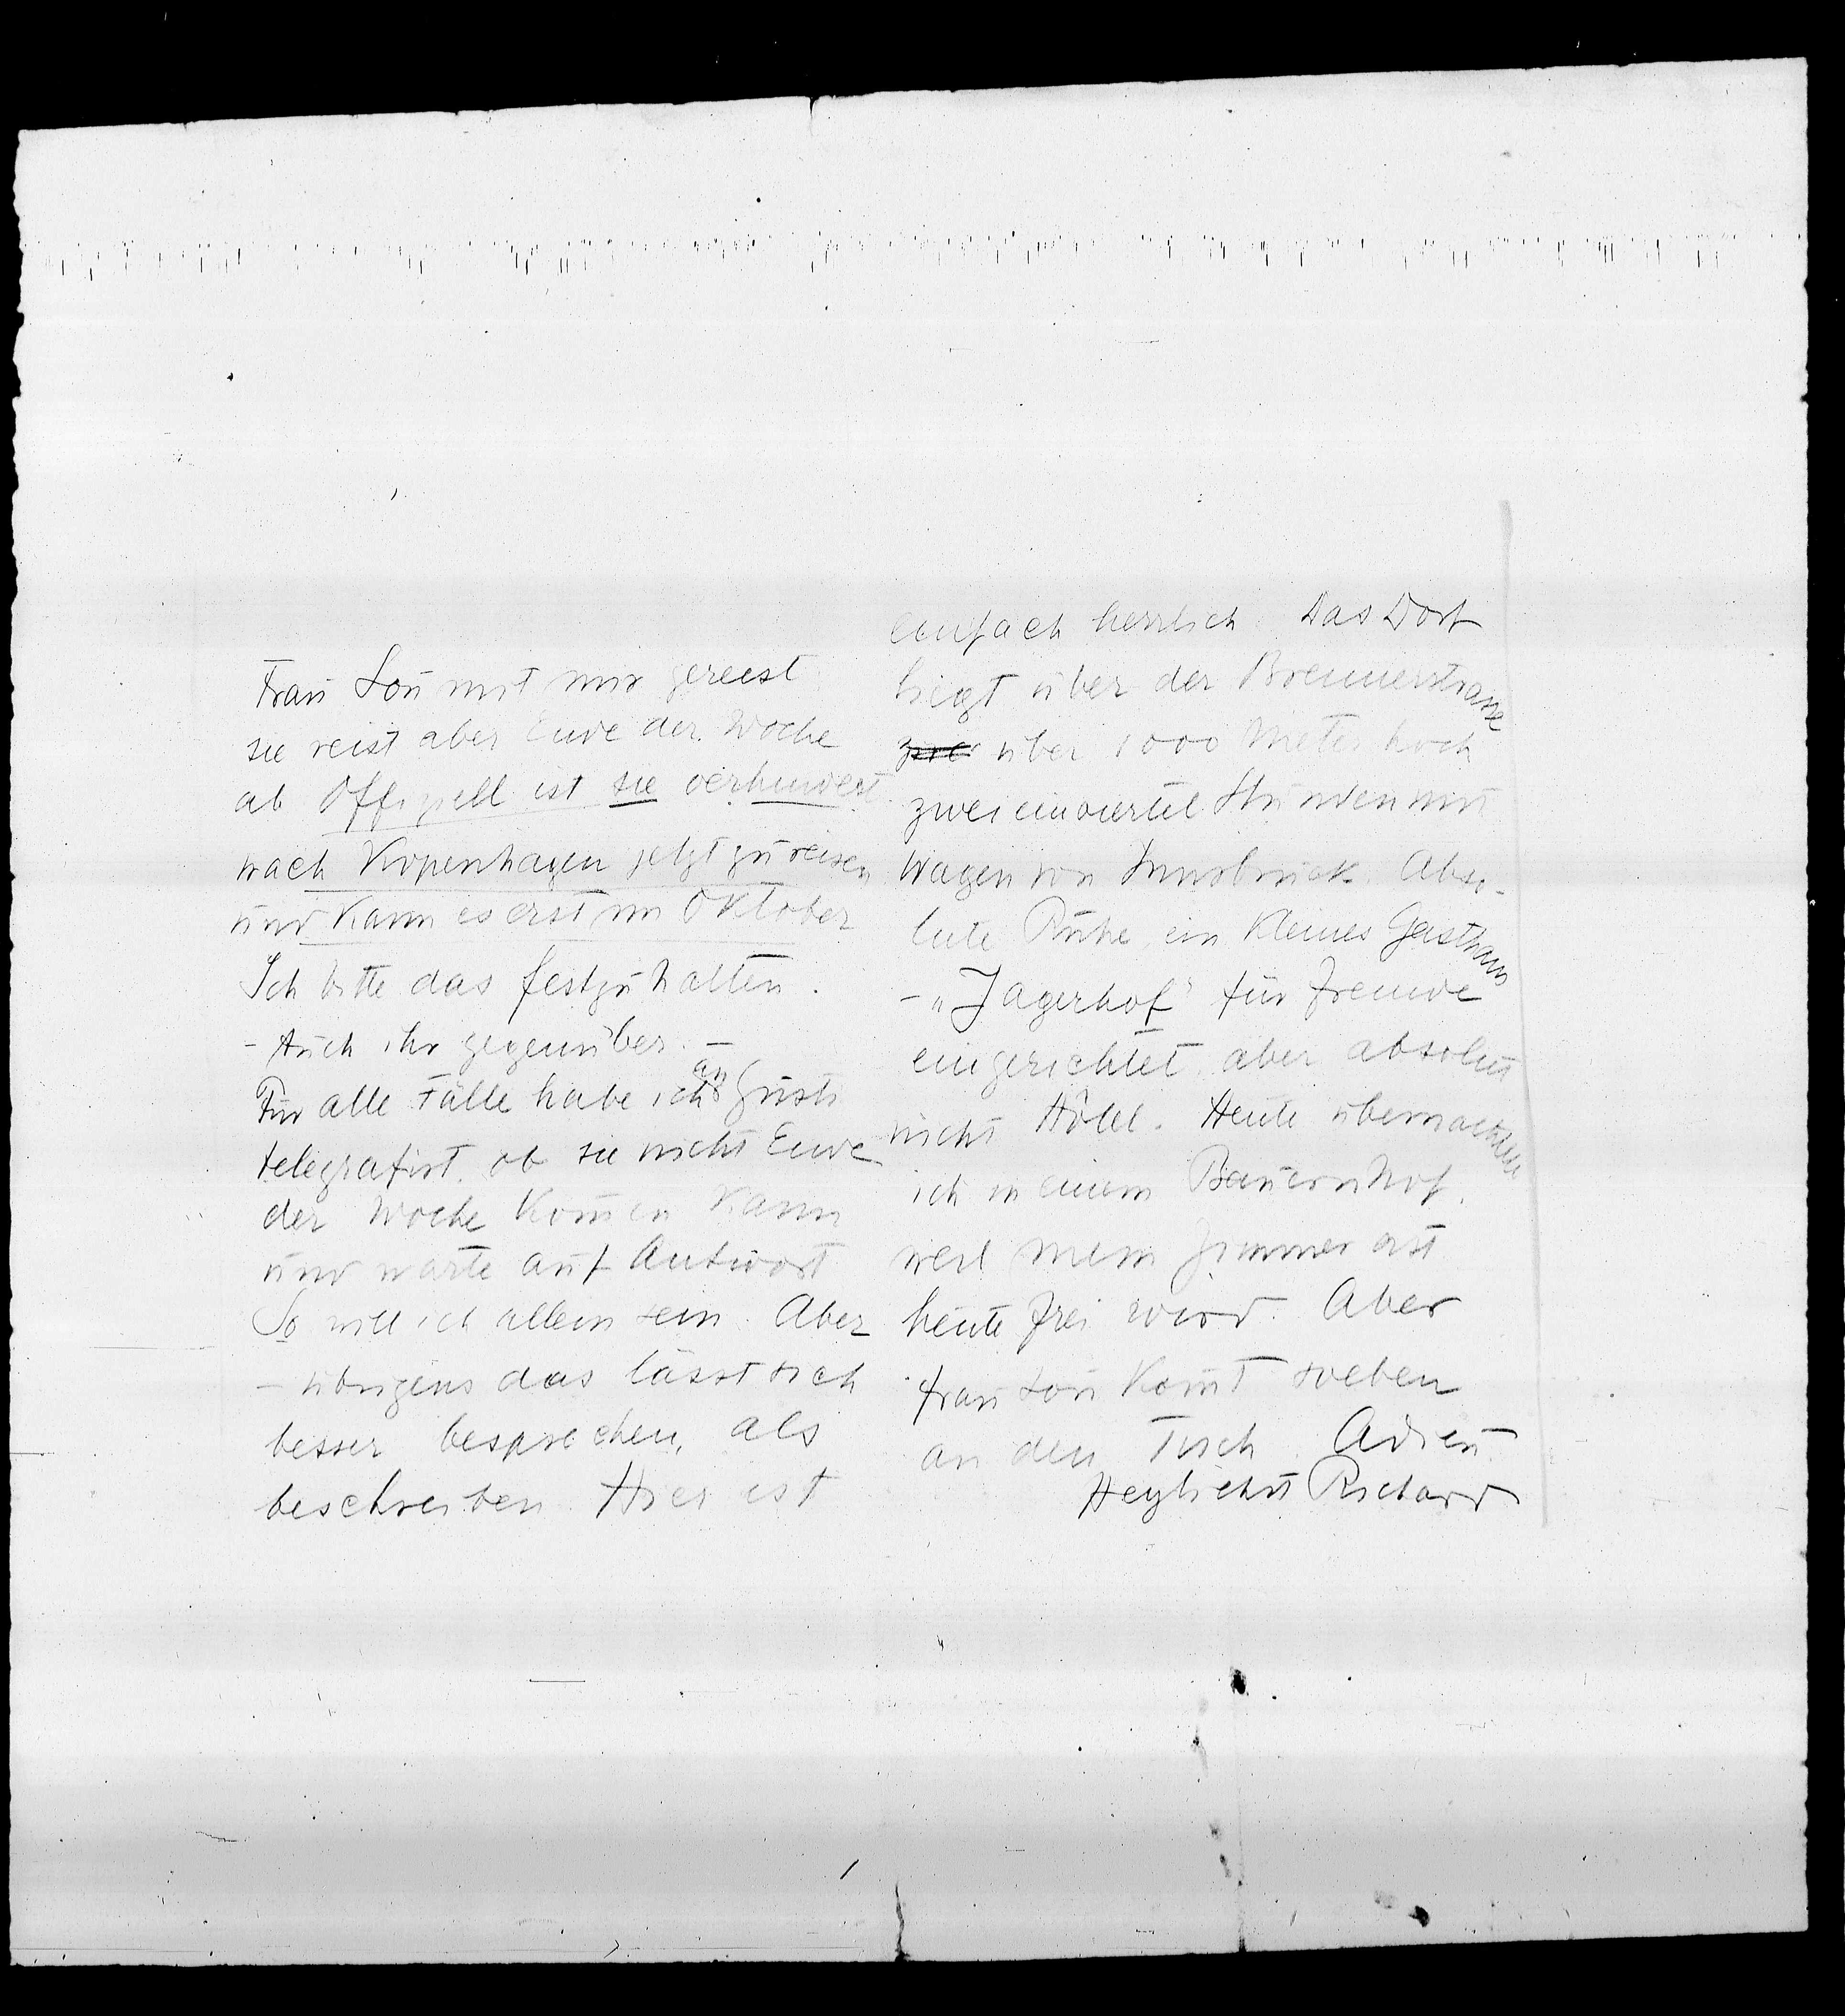 Frau Lou mit mir gereist
sie reist aber Ende der Woche
ab Offiziell ist sie verhindert
nach Kopenhagen jetzt zu reisen
und kann es erst im Oktober
Ich bitte das festzuhalten.
- Auch ihr gegenüber. -
Für alle Fälle habe ich an Gusti
telegrafirt, ob sie nicht Ende
der Woche kom̄en kann
und warte auf Antwort
So will ich allein sein. Aber
- übrigens das lässt sich
besser besprechen, als
beschreiben. Hier ist
einfach herrlich. Das Dorf
liegt über der Brennerstrasse
zwei über 1000 Meter hoch
zweieinviertel Stunden mit
Wagen von Innsbruck. Abso-
lute Ruhe, ein kleines Gasthaus
- „Jagerhof" für Fremde
eingerichtet, aber absolut
nicht Hôtel. Heute übernachte
ich in einem Bauernhof,
weil mein Zimmer erst
heute frei wird. Aber
Frau Lou kom̄t soeben
an den Tisch. Adieu
Herzlichst Richard